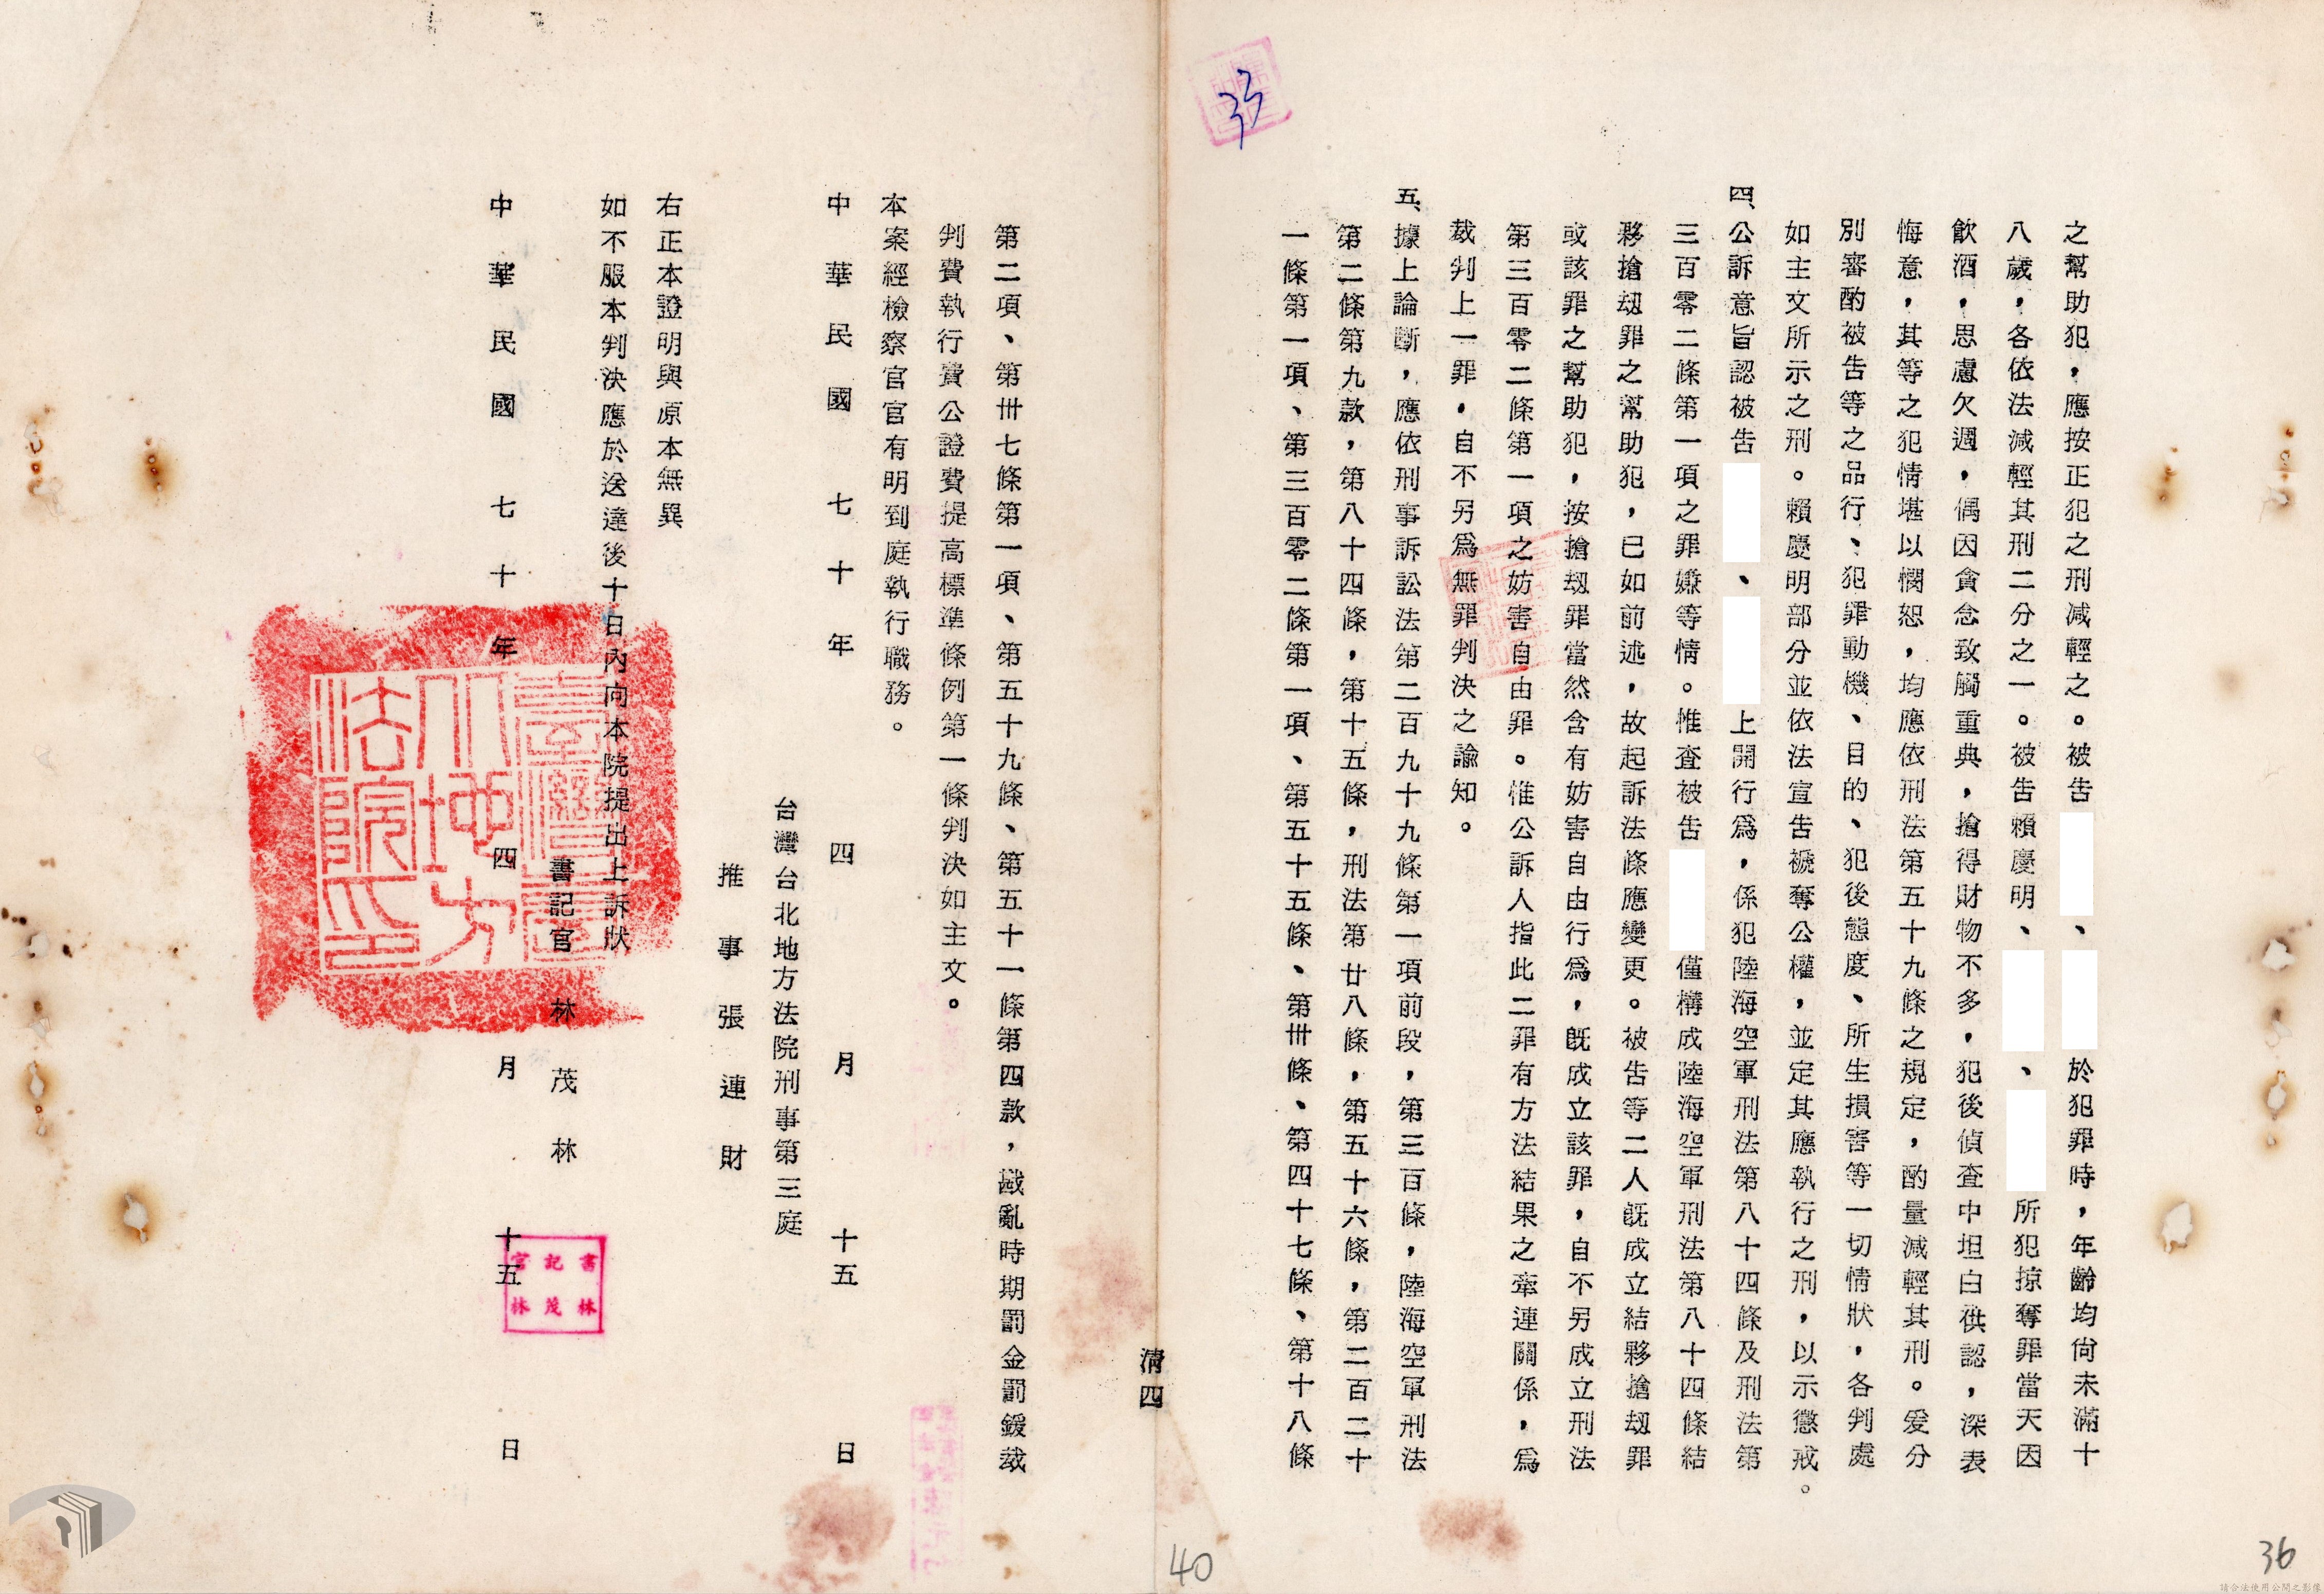 之幫助犯，應按正犯之刑減輕之。被告、於犯罪時，年齡均尙未滿十
八歲，各依法減輕其刑二分之一。被告賴慶明、、所犯掠奪罪當天因
飮酒，思慮欠週，偶因貪念致觸重典，搶得財物不多，犯後偵查中坦白供認，深表
悔意，其等之犯情堪以憫恕，均應依刑法第五十九條之規定，酌量減輕其刑。爰分
別審酌被告等之品行、犯罪動機、目的、犯後態度、所生損害等一切情狀，各判處
如主文所示之刑。賴慶明部分並依法宣告褫奪公權，並定其應執行之刑，以示懲戒。
四、公訴意旨認被告、上開行爲，係犯陸海空軍刑法第八十四條及刑法第
三百零二條第一項之罪嫌等情。惟查被告僅構成陸海空軍刑法第八十四條結
夥搶刼罪之幫助犯，已如前述，故起訴法條應變更。被告等二人旣成立結夥搶刼罪
或該罪之幫助犯，按搶刼罪當然含有妨害自由行爲，旣成立該罪，自不另成立刑法
第三百零二條第一項之妨害自由罪。惟公訴人指此二罪有方法結果之牽連關係，爲
裁判上一罪，自不另爲無罪判決之諭知。
五、據上論斷，應依刑事訴訟法第二百九十九條第一項前段，第三百條，陸海空軍刑法
第二條第九款，第八十四條，第十五條，刑法第廿八條，第五十六條，第二百二十
一條第一項、第三百零二條第一項、第五十五條、第卅條、第四十七條、第十八條
第二項、第卅七條第一項、第五十九條、第五十一條第四款，戡亂時期罰金罰鍰裁
判費執行費公證費提高標準條例第一條判決如主文。
本案經檢察官官有明到庭執行職務。
中華民國七十年四月十五日
台灣台北地方法院刑事第三庭
推事張連財
右正本證明與原本無異
如不服本判決應於送達後十日內向本院提出上訴狀
書記官林茂林
中華民國七十年四月十五日
臺灣臺北地方法院印
書記官林茂林
淸四
35
40
36
請合法使用公開之影像